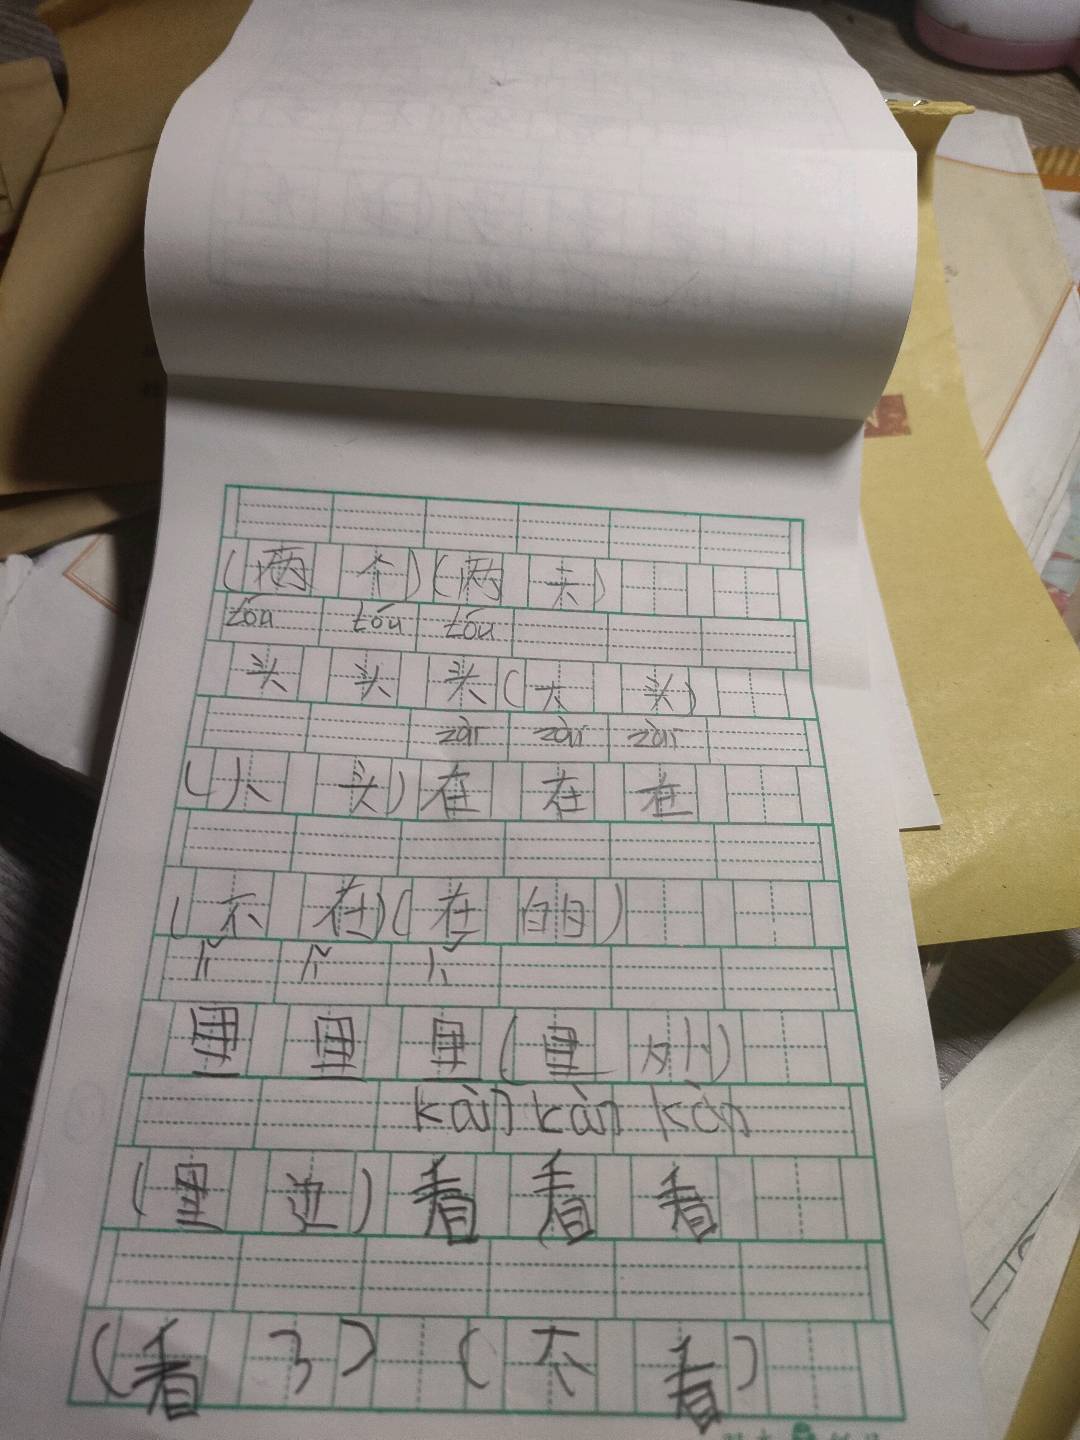 (两个)(两
tóu tóu tóu
头头头(大头)
zài zài zài
头)在在在
(不在)(在
lǐ lǐ lǐ
里里里(里外)
kàn kàn kàn
(里边)看看看
(看了) (不看)